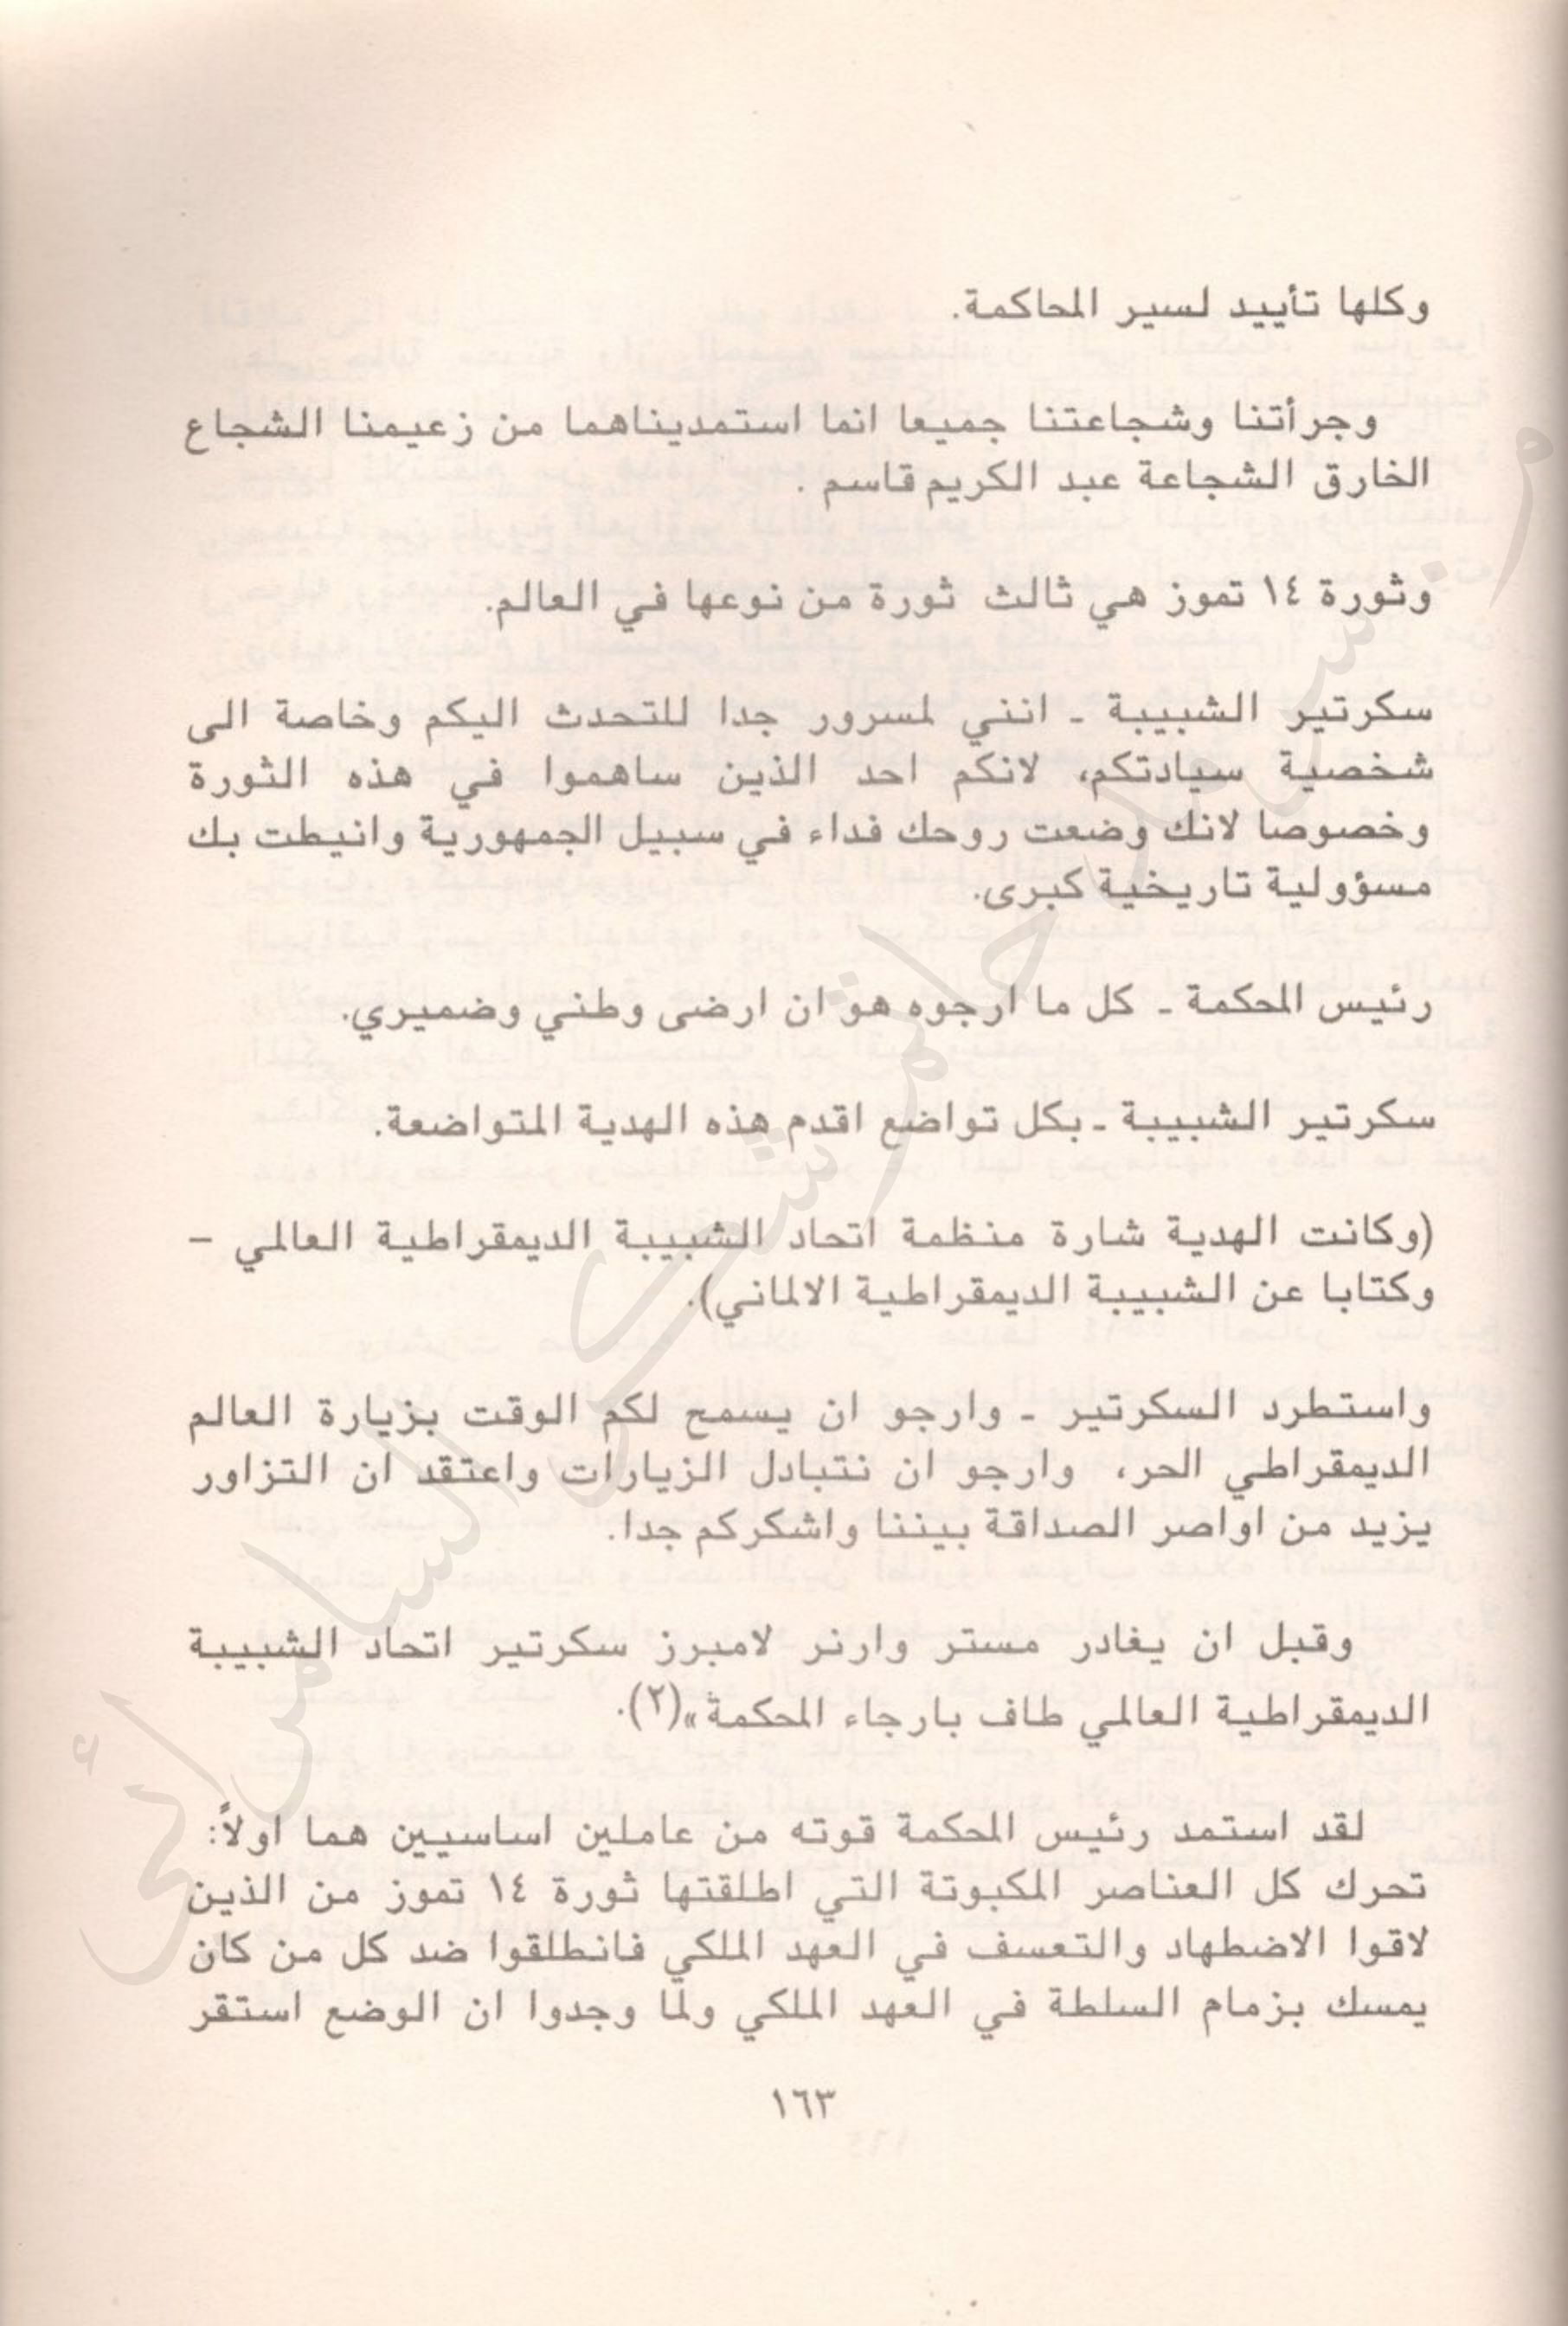 وكلها تأييد لسير المحاكمة.
وجرأتنا وشجاعتنا جميعا انما استمديناهما من زعيمنا الشجاع
الخارق الشجاعة عبد الكريم قاسم .
وثورة ١٤ تموز هي ثالث ثورة من نوعها في العالم.
سكرتير الشبيبة ـ انني لمسرور جدا للتحدث اليكم وخاصة الى
شخصية سيادتكم، لانكم احد الذين ساهموا في هذه الثورة
وخصوصا لانك وضعت روحك فداء في سبيل الجمهورية وانيطت بك
مسؤولية تاريخية كبرى.
رئيس المحكمة ـ كل ما ارجوه هو ان ارضى وطني وضميري.
سكرتير الشبيبة ـ بكل تواضع اقدم هذه الهدية المتواضعة.
(وكانت الهدية شارة منظمة اتحاد الشبيبة الديمقراطية العالمي –
وكتابا عن الشبيبة الديمقراطية الالماني).
واستطرد السكرتير ـ وارجو ان يسمح لكم الوقت بزيارة العالم
الديمقراطي الحر، وارجو ان نتبادل الزيارات واعتقد ان التزاور
يزيد من اواصر الصداقة بيننا واشكركم جدا.
وقبل ان يغادر مستر وارنر لامبرز سكرتير اتحاد الشبيبة
الديمقراطية العالمي طاف بارجاء المحكمة»(٢).
لقد استمد رئيس المحكمة قوته من عاملين اساسيين هما اولاً:
تحرك كل العناصر المكبوتة التي اطلقتها ثورة ١٤ تموز من الذين
لاقوا الاضطهاد والتعسف في العهد الملكي فانطلقوا ضد كل من كان
يمسك بزمام السلطة في العهد الملكي ولما وجدوا ان الوضع استقر
١٦٣